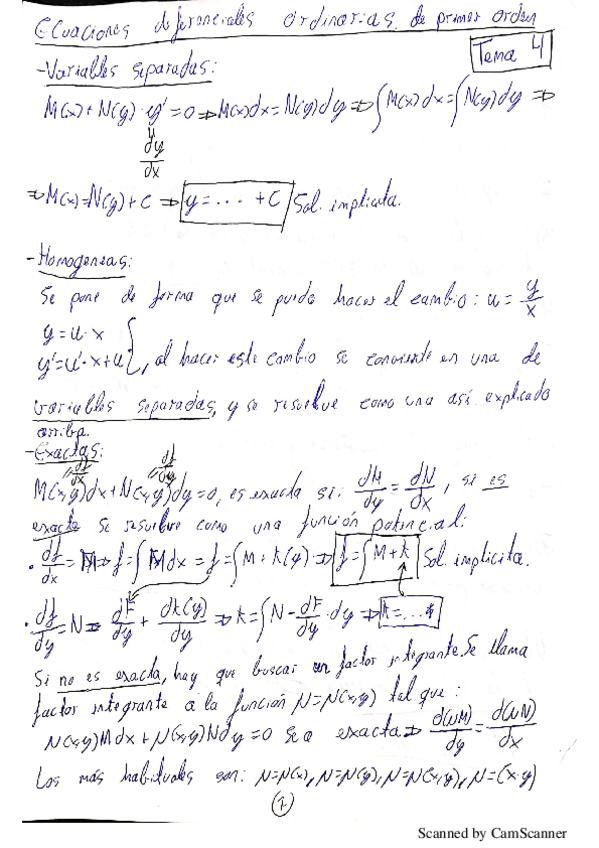 Ecuaciones diferenciales ordinarias de primer orden
Tema 4
-Variables separadas:
M(x)+N(y)·y'=0 ⇒ M(x)dx=N(y)dy ⇒ ∫M(x)dx=∫N(y)dy ⇒
dy/dx
⇒ M(x)=N(y)+C ⇒ y=... +C Sol. implicita.
-Homogeneas:
Se pone de forma que se pueda hacer el cambio: u = y/x
y=u·x
y'=u'·x+u }, al hacer este cambio se convierte en una de
variables separadas, y se resuelve como una así explicado
arriba.
-Exactas:
=df/dx =df/dy
M(x,y)dx+N(x,y)dy=0, es exacta si: dM/dy = dN/dx, si es
exacta se resuelve como una función potencial:
· df/dx = M ⇒ f=∫Mdx = f=∫M + k(y) ⇒ f=∫M+k Sol. implicita.
· df/dy = N ⇒ dF/dy + dk(y)/dy ⇒ k=∫N-dF/dy·dy ⇒ k=...
Si no es exacta, hay que buscar un factor integrante. Se llama
factor integrante a la función μ=μ(x,y) tal que:
μ(x,y)Mdx+μ(x,y)Ndy=0 sea exacta ⇒ d(μM)/dy = d(μN)/dx
Los más habituales son: μ=μ(x), μ=μ(y), μ=μ(x,y), μ=(x·y)
1
Scanned by CamScanner